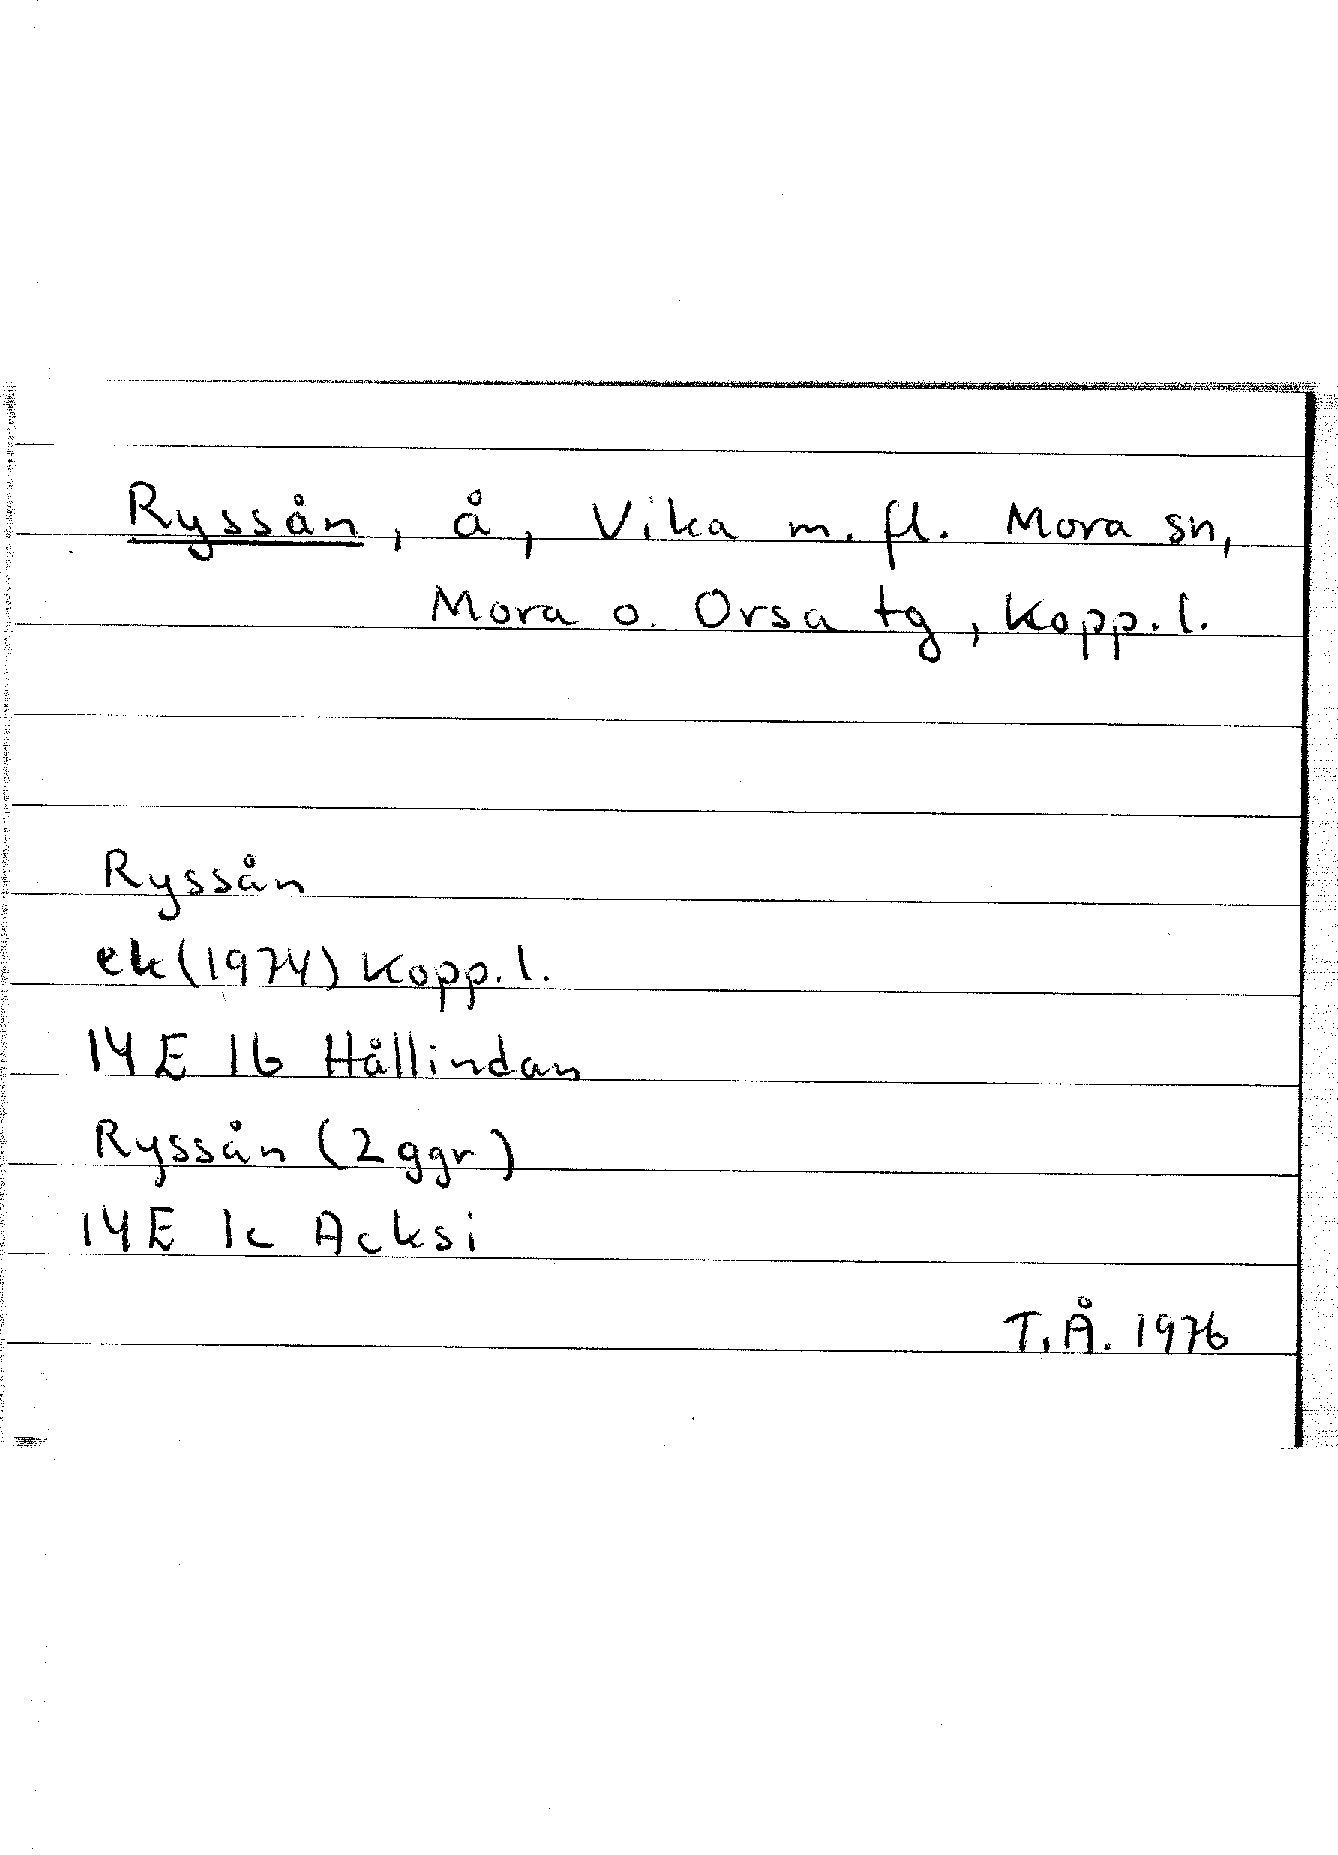 Ryssån, å, Vika m. fl. Mora sn,
Mora o. Orsa tg, Kopp. l.
Ryssån
ek (1974) Kopp. l.
14E 1b Hållindan
Ryssån (2 ggr)
14E 1c Acksi
T.Å. 1976